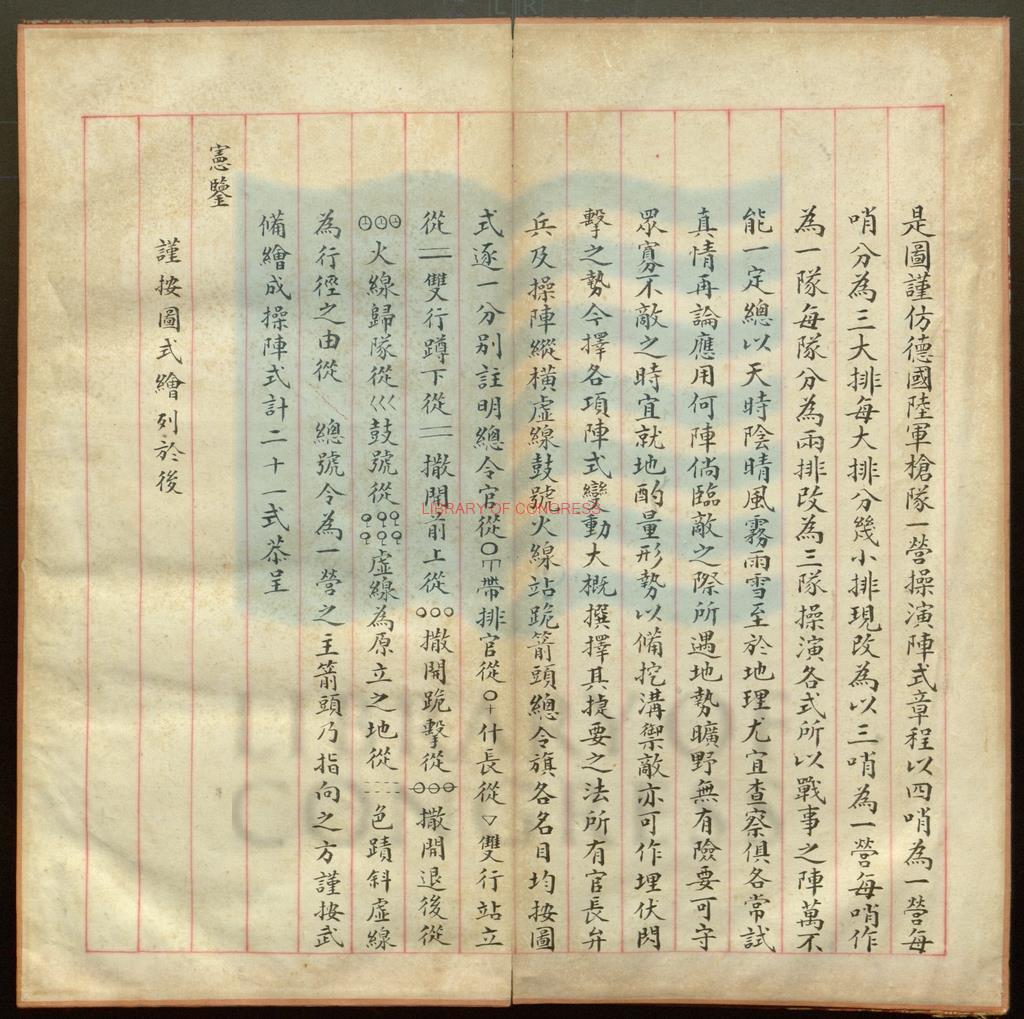 是圖謹仿德國陸軍槍隊一營操演陣式章程以四哨為一營每
哨分為三大排每大排分幾小排現改為以三哨為一營每哨作
為一隊每隊分為兩排改為三隊操演各式所以戰事之陣萬不
能一定總以天時陰晴風霧雨雪至於地理尤宜查察俱各常試
真情再論應用何陣倘臨敵之際所遇地勢曠野無有險要可守
眾寡不敵之時宜就地酌量形勢以備挖溝禦敵亦可作埋伏閃
擊之勢今擇各項陣式變動大概撰擇其捷要之法所有官長弁
兵及操陣縱橫虛線鼓號火線站跪箭頭總令旗各名目均按圖
式逐一分別註明總令官從帶排官從什長從▽雙行站立
從＝雙行蹲下從＝撒開前上從○○○撒開跪擊從撒開退後從
火線歸隊從〈〈〈鼓號從虛線為原立之地從色蹟斜虛線
為行徑之由從總號令為一營之主箭頭乃指向之方謹按武
備繪成操陣式計二十一式恭呈
憲鑒
謹按圖式繪列於後
LIBRARY OF CONGRESS